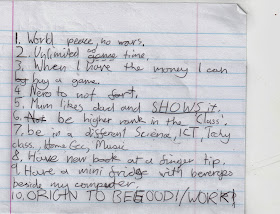 1. World peace, no wars.
2. Unlimited game time.
3. When I have the money I can
buy a game.
4 Nero to not fart.
5. Mum likes dad and SHOWS it.
6. be higher rank in the 'Class'.
7. be in a different Science, ICT, Tecky
class. Home Ec, Music
8. Have new book at a finger tip.
9. Have a mini fridge with beverges
beside my computer.
10. ORIGIN TO BE GOOD!/WORK!